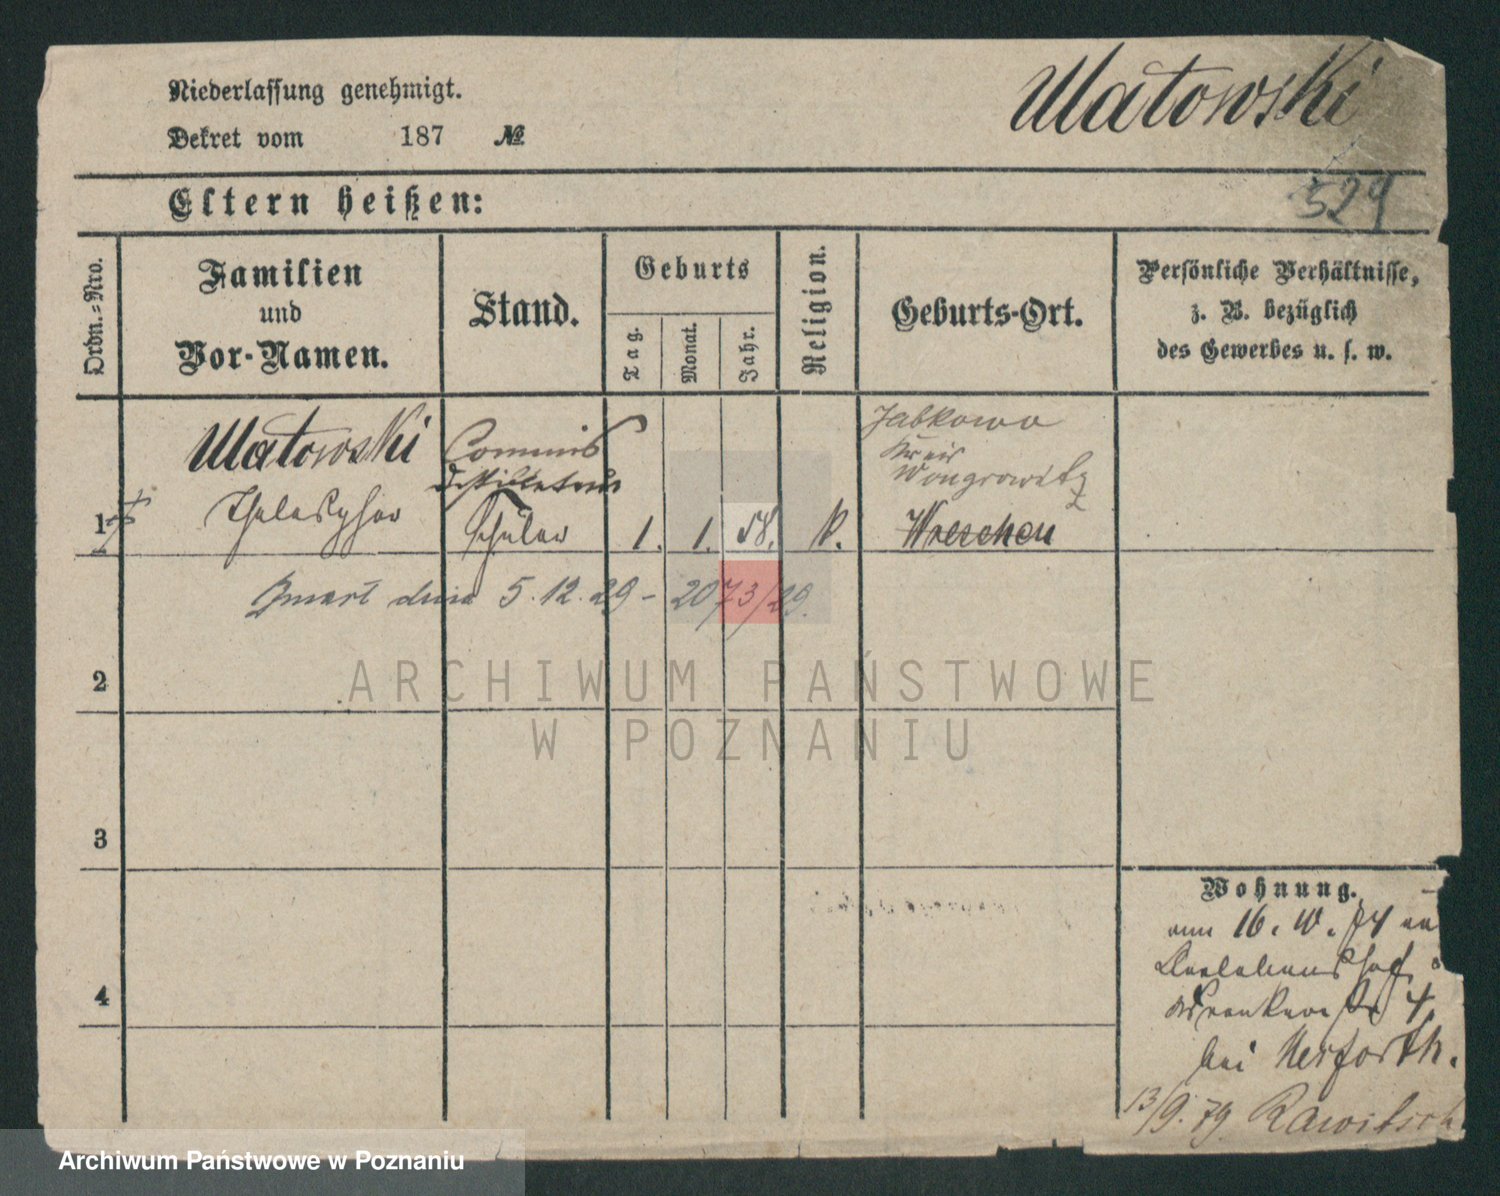 Niederlassung genehmigt.
Dekret vom 187 №
Matowski
529
Eltern heißen:
Ordn.-Nro.
Familien
und
Vor-Namen.
Stand.
Geburts
Tag.
Monat.
Jahr.
Religion.
Geburts-Ort.
Persönliche Verhältnisse,
z. B. bezüglich
des Gewerbes u. s. w.
1
Matowski
Thelesphor
Commis
Schüler
1. 1. 58. k.
Jabkowo
Kreis
Wongrowitz
Wreschen
Zmarł dnia 5.12.29 - 2073/29.
2
ARCHIWUM PAŃSTWOWE
W POZNANIU
3
4
Wohnung.
16. IV. 74
4
bei Herforth.
13/9. 79 Rawitsch
Archiwum Państwowe w Poznaniu